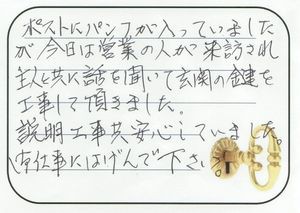 ポストにパンフが入っていました
が今日は営業の人が来訪され
主人と共に話を聞いて玄関の鍵を
工事して頂きました。
説明工事共安心していました。
仕事にはげんで下さい。